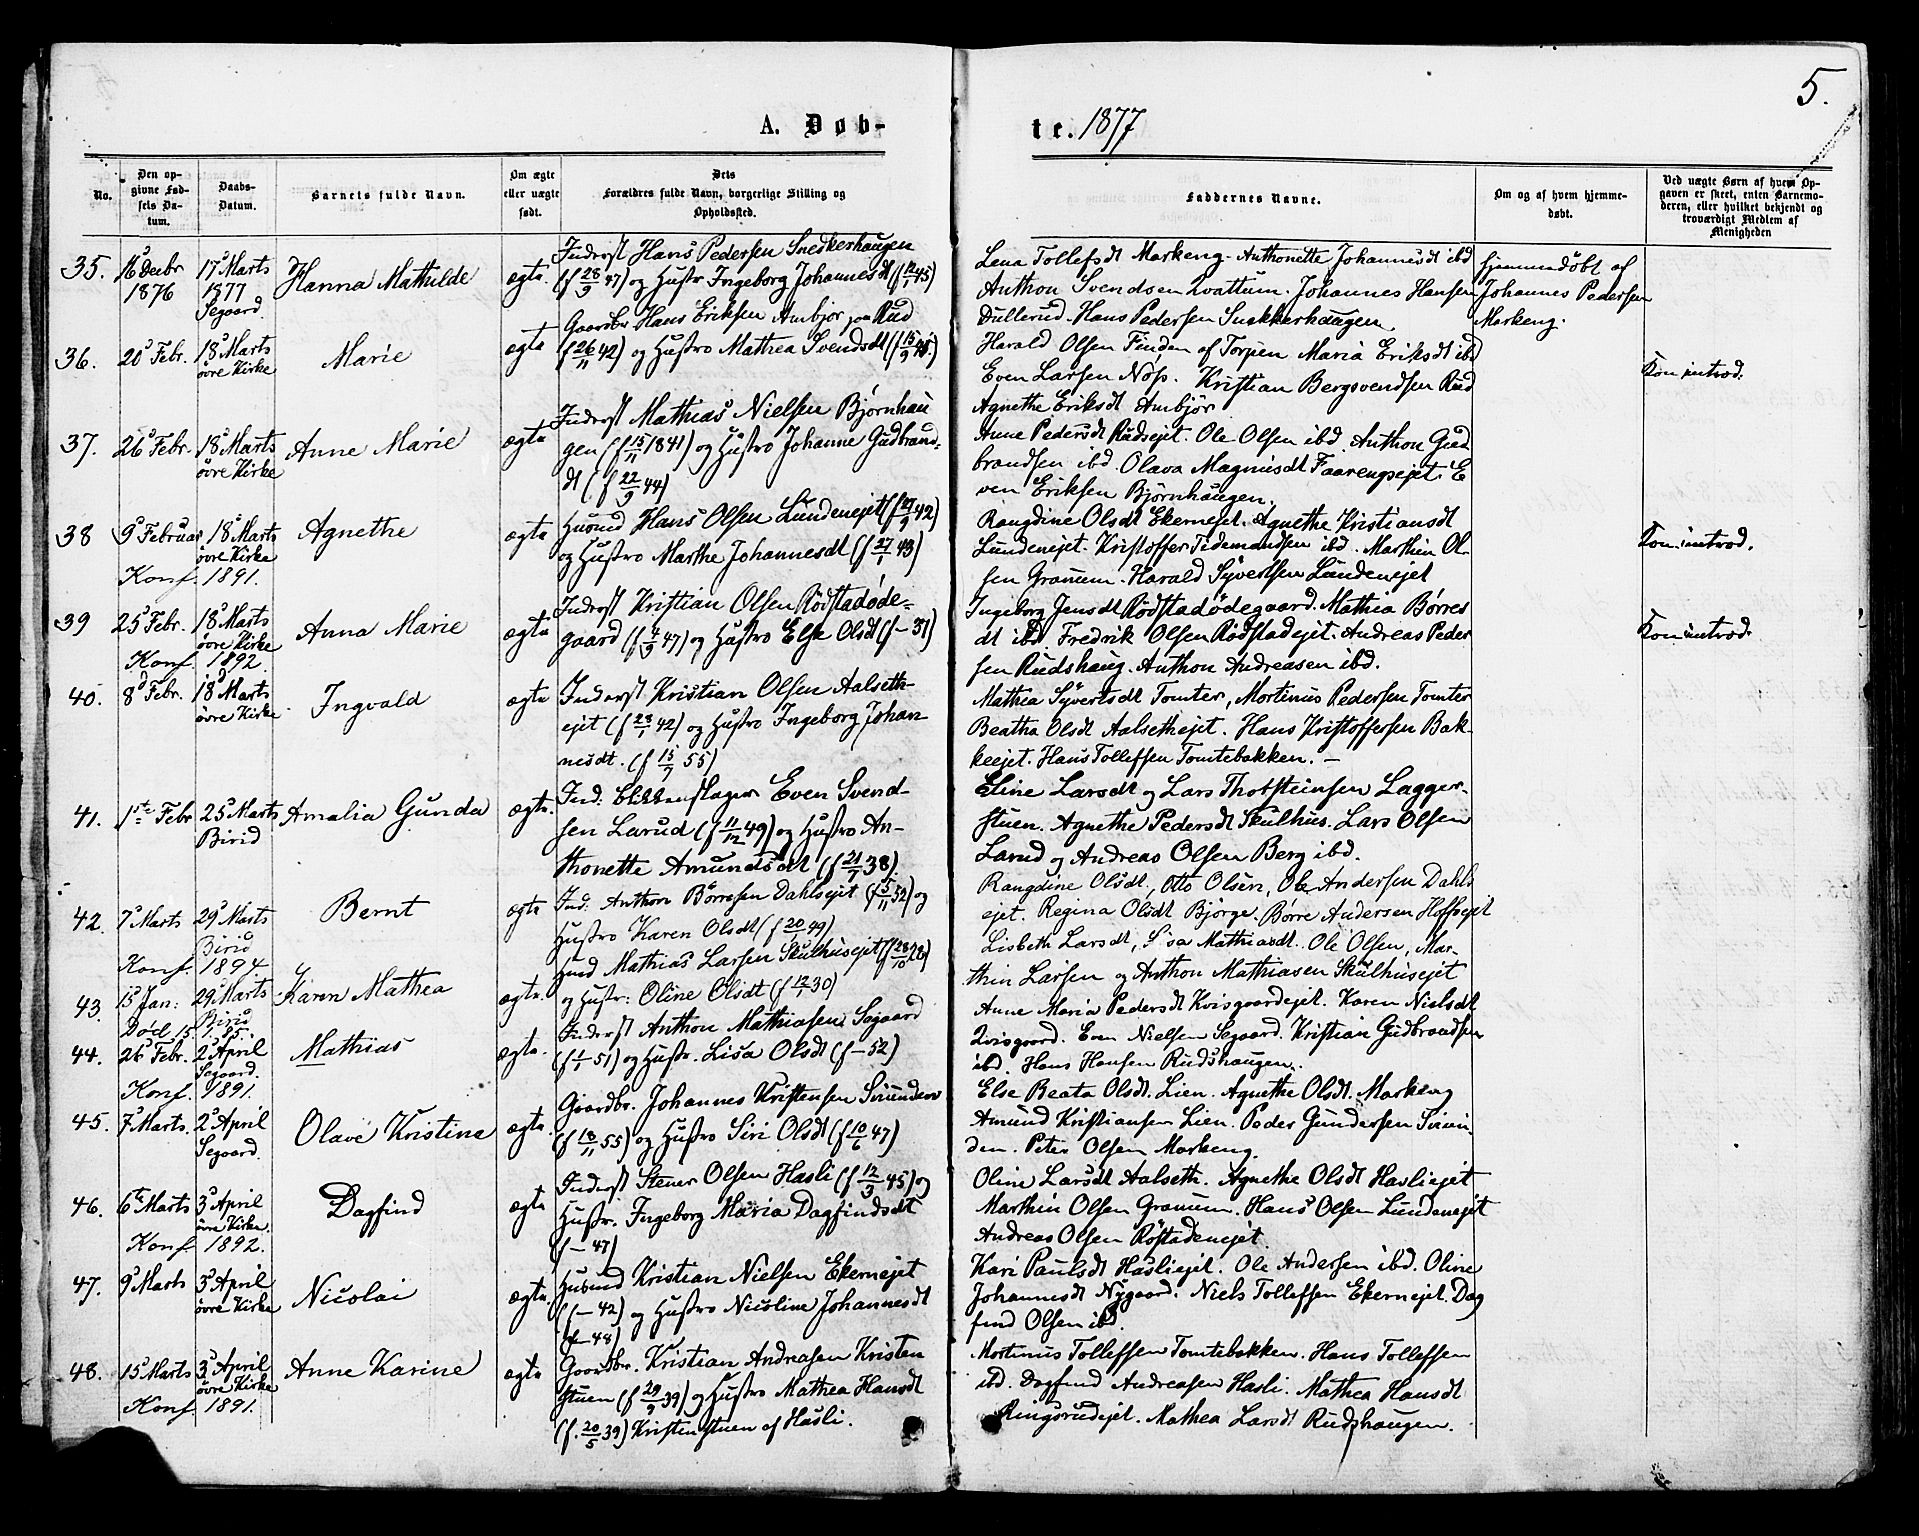 5.
A. Døb-
te. 1877
No.
Den opgivne Fødsels Datum.
Daabs-Datum.
Barnets fulde Navn.
Om ægte eller uægte født.
Dets Forældres fulde Navn, borgerlige Stilling og Opholdssted.
Faddernes Navne.
Om og af hvem hjemmedøbt.
Ved uægte Børn af hvem Opgaven er skeet, enten Barnemoderen, eller hvilket bekjendt og troværdigt Medlem af Menigheden
35. 16 Decbr 1876 17 Marts 1877 Segaard. Hanna Mathilde ægte.
Inderst Hans Pedersen Snedkerhaugen
(f 28/9 47) og Hustr Ingeborg Johannesdt (f 12/1 45)
Lena Tollefsdt Markeng. Anthonette Johannesdt ibd
Anthon Svendsen Qvattum. Johannes Hansen
Dullerud. Hans Pedersen Snekkerhaugen
Hjemmedøbt af
Johannes Pedersen
Markeng.
36. 20 Febr. 18 Marts øvre Kirke Marie ægte
Gaardbr Hans Eriksen Ambjør paa Rud
(f 26/11 42) og Hustro Mathea Svendsdt
Harald Olsen Finden af Torpen Maria Eriksdt ibd
Even Larsen Nøss. Kristian Bergsvendsen Rud
Agnethe Eriksdt Ambjør
Kon introd.
37. 26 Febr. 18 Marts øvre Kirke Anne Marie ægte
Inderst Mathias Nielsen Bjørnhau
gen (f 15/11 1841) og Hustro Johanne Gudbrands-
dt (f 22/9 44)
Anne Pedersdt Rudsejet. Ole Olsen ibd. Anthon Gud
brandsen ibd. Olava Magnusdt Faarengsejet. E
ven Eriksen Bjørnhaugen.
38 9 Februar 18 Marts øvre Kirke Agnethe ægte
Konf. 1891.
Husmd Hans Olsen Lundenejet
og Hustro Marthe Johannesdt (f 27/1 43)
Rangdine Olsdt Ekernejet. Agnethe Kristiansdt
Lundenejet. Kristoffer Tidemandsen ibd. Marthin Ol-
sen Granum. Harald Syversen Lundenejet
Kon. introd.
39 25 Febr. 18 Marts øvre Kirke Anna Marie ægte
Konf. 1892.
Inderst Kristian Olsen Rødstadøde-
gaard (f 4/9 47) og Hustro Else Olsdt (f – 31)
Ingeborg Jensdt Rødstadødegaard. Mathia Børres
dt ibd Fredrik Olsen Rødstadejet. Andreas Peder
sen Rudshaug. Anthon Andreasen ibd.
Kon introd.
40. 8 Febr. 18 Marts øvre Kirke Ingvald ægte
Inderst Kristian Olsen Aalseth-
ejet (f 23/1 42) og Hustro Ingeborg Johan-
nesdt. (f 15/7 55)
Mathea Syvertsdt Tomter, Mortinus Pedersen Tomter
Beatha Olsdt Aalsethejet. Hans Kristoffersen Bak-
keejet. Hans Tollefsen Tomtebakken. –
41. 1ste Febr 25 Marts Birid Amalia Gunda ægte.
Ind. Blikkenslager Even Svend-
sen Larud (f 11/12 49) og Hustro An-
thonette Amundsdt (f 21/7 38).
Eline Larsdt og Lars Thorsteinsen Lagger-
stuen. Agnethe Pedersdt Skulhus. Lars Olsen
Larud og Andreas Olsen Berg ibd.
42. 7 Marts 29 Marts Birid Bernt ægte
Konf. 1894
Ind. Anthon Børresen Dahlsejet (f 5/11 52) og
Hustro Karen Olsdt (f 20/1 49)
Rangdine Olsdt, Otto Olsen, Ole Andersen Dahls
ejet. Regina Olsdt Bjørge. Børre Andersen Hoffsejet
43. 15 Jan: 29 Marts Birid Karen Mathea ægte.
Død 15
Husmd Mathias Larsen Skulhusejet (f 28/10 28)
og Hustr: Oline Olsdt (f 12/1 30)
Lisbeth Larsdt, Lisa Mathiasdt. Ole Olsen, Mar-
thin Larsen og Anthon Mathiasen Skulhusejet
44. 26 Febr. 2 April Segaard. Mathias ægte.
Konf. 1891.
Inderst Anthon Mathiasen Segaard
(f 1/1 51) og Hustr. Lisa Olsdt (f – 52)
Anne Maria Pedersdt Kvisgaardejet. Karen Nielsdt
Qvisgaard. Even Nielsen Segaard. Kristian Gudbrandsen
ibd. Hans Hansen Rudshaugen.
45. 7 Marts. 2 April Segaard. Olave Kristina ægte.
Gaardbr. Johannes Kristensen Sinnenden
(f 18/11 55) og Hustro Siri Olsdt (f 10/6 47)
Else Beata Olsdt. Lien. Agnethe Olsdt. Markeng
Amund Kristiansen Lien. Peder Gundersen Sinnen-
den. Peter Olsen Markeng.
46. 6te Marts 3 April øvre Kirke. Dagfind ægte
Konf. 1892.
Inderst Stener Olsen Hasli (f 12/3 45) og
Hustr. Ingeborg Maria Dagfindsdt
(f – 47)
Oline Larsdt Aalseth. Agnethe Olsdt Hasliejet
Marthin Olsen Granum. Hans Olsen Lundenejet
Andreas Olsen Røstadenejet.
47. 9 Marts 3 April øvre Kirke Nicolai ægte.
Husmd Kristian Nielsen Ekernejet
(f – 42) og Hustro Nicoline Johannesdt
(f – 48)
Kari Paulsdt Hasliejet. Ole Andersen ibd. Oline
Johannesdt Nygaard. Niels Tollefsen Ekernejet. Dag
find Olsen ibd.
48. 15 Marts 3 April øvre Kirke Anne Karine ægte
Konf. 1891.
Gaardbr. Kristian Andreasen Kristen
stuen (f 29/9 39) og Hustro Mathea Hansdt
(f. 20/5 39) Kristenstuen af Hasli.
Mortinus Tollefsen Tomtebakken. Hans Tollefsen
ibd. Dagfind Andreasen Hasli. Mathea Hansdt
Ringsrudejet. Mathea Larsdt Rudshaugen.